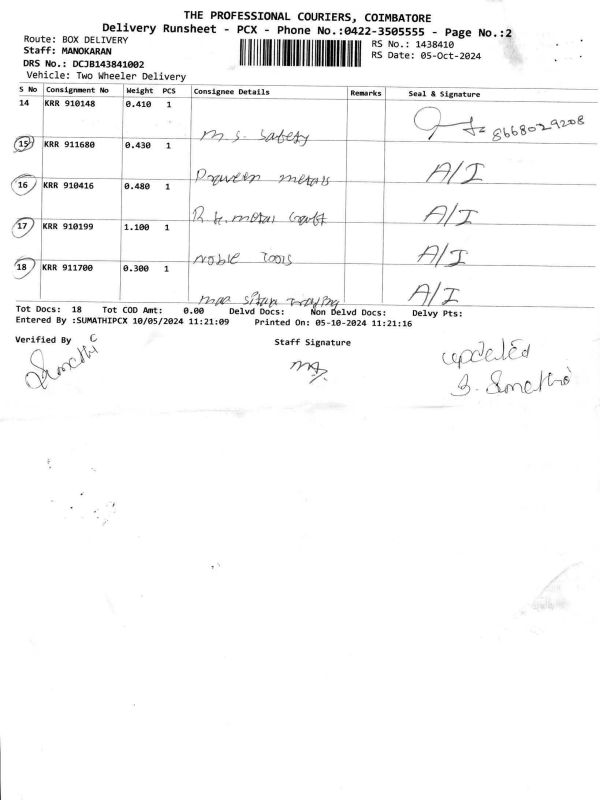 THE PROFESSIONAL COURIERS, COIMBATORE
Delivery Runsheet - PCX - Phone No.:0422-3505555 - Page No.:2
Route: BOX DELIVERY
RS No.: 1438410
Staff: MANOKARAN
RS Date: 05-Oct-2024
DRS No.: DCJB143841002
Vehicle: Two Wheeler Delivery
S No Consignment No Weight PCS Consignee Details Remarks Seal & Signature
14 KRR 910148 0.410 1 M.S. Safety 8668029208
15 KRR 911680 0.430 1 Praveen metals A/I
16 KRR 910416 0.480 1 R K. metal craft A/I
17 KRR 910199 1.100 1 Noble Tools A/I
18 KRR 911700 0.300 1 maa A/I
Tot Docs: 18 Tot COD Amt: 0.00 Delvd Docs: Non Delvd Docs: Delvy Pts:
Entered By :SUMATHIPCX 10/05/2024 11:21:09 Printed On: 05-10-2024 11:21:16
Verified By Staff Signature
updated
Sumathi
B. Sumathi